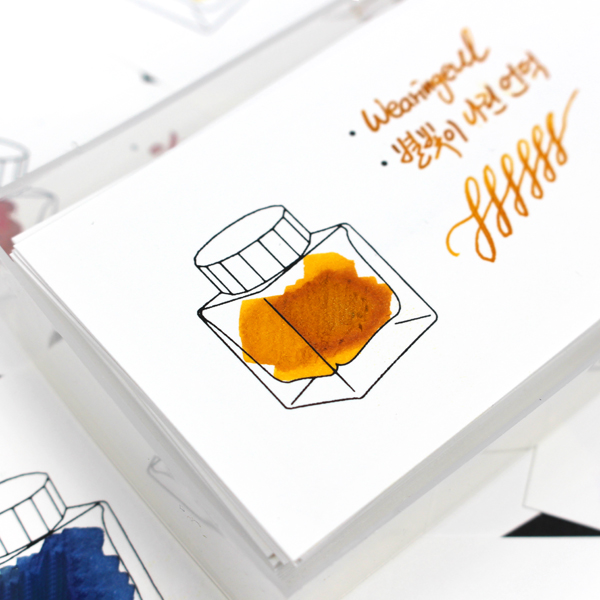 Wearingeul
별빛이 내린 언덕